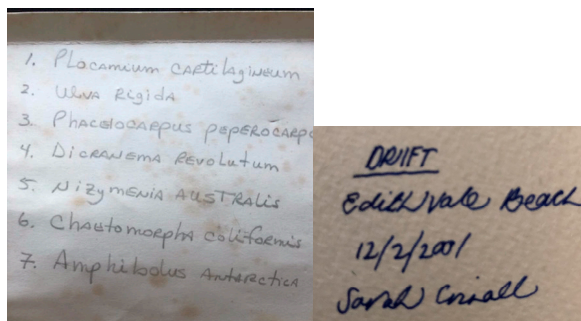 1. Plocamium cartilagineum
2. Ulva Rigida
3. Phacelocarpus peperocarpo
4. Dicranema Revolutum
5. Nizymenia Australis
6. Chaetomorpha coliformis
7. Amphibolus Antarctica
DRIIFT
Edithvale Beach
12/2/2001
Sarah